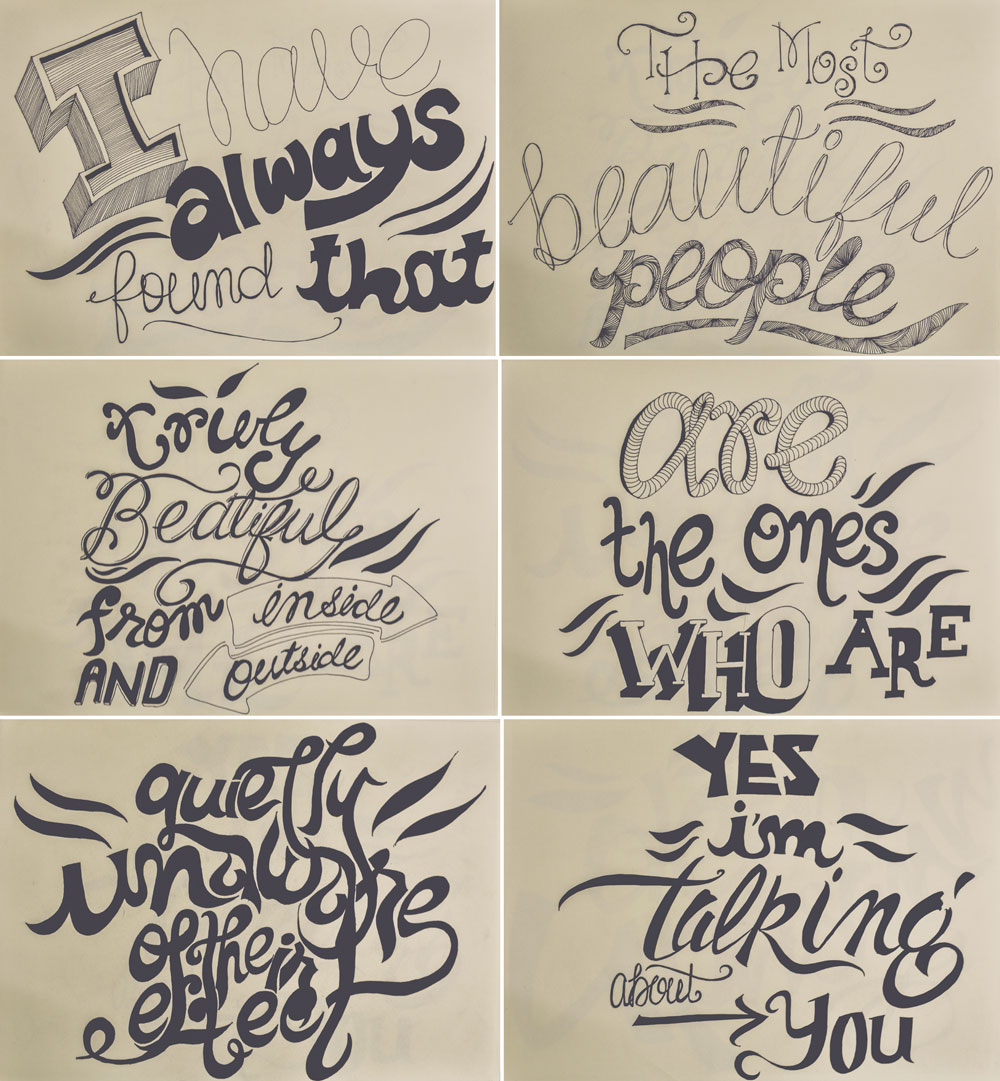 I have
always
found that
THe Most
beautiful
people
truly
Beatiful
from inside
AND outside
are
the ones
WHO ARE
quietly
unaware
of their
effect
YES
i'm
talking
about
You